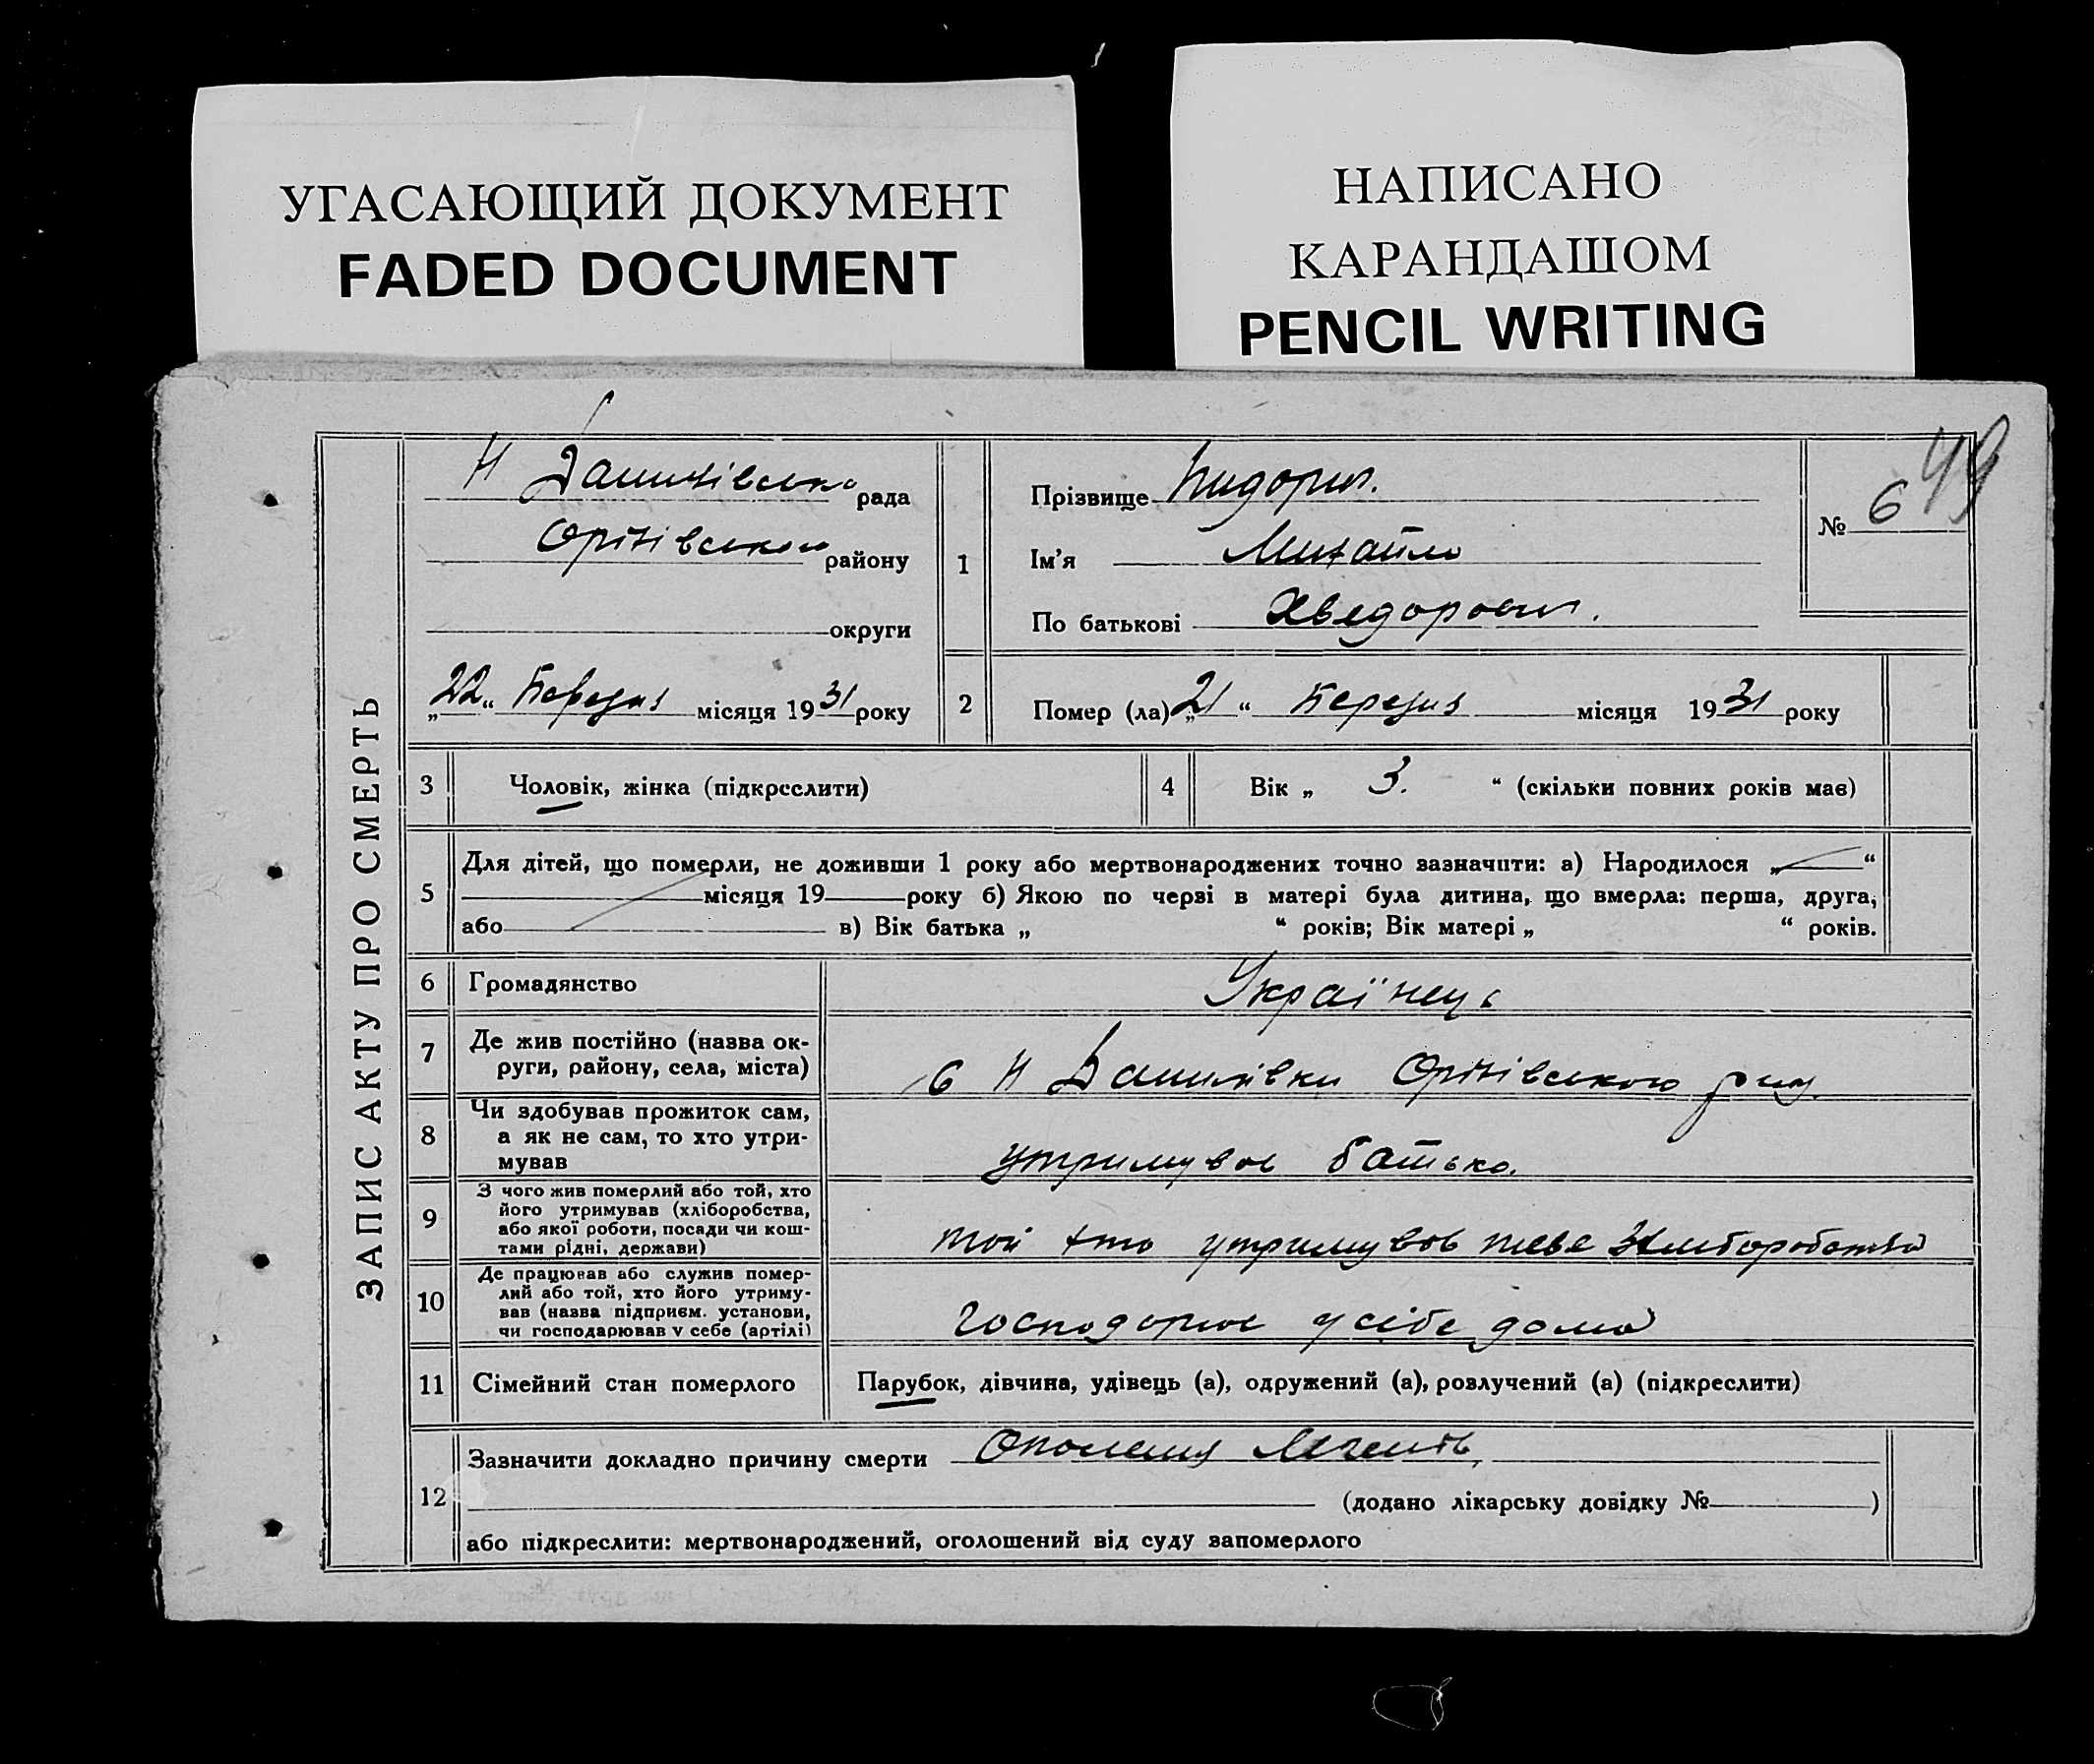 УГАСАЮЩИЙ ДОКУМЕНТ
FADED DOCUMENT
НАПИСАНО
КАРАНДАШОМ
PENCIL WRITING
ЗАПИС АКТУ ПРО СМЕРТЬ
Н рада
Оріхівського району
округи
„22“ Березня місяця 1931 року
1
Прізвище
Ім'я Михайло
По батькові Хведорович.
№ 6
49
2 Помер (ла) „21“ Березня місяця 1931 року
3 Чоловік, жінка (підкреслити)
4 Вік „ 3. “ (скільки повних років має)
5 Для дітей, що померли, не доживши 1 року або мертвонароджених точно зазначити: а) Народилося „ “
місяця 19 року б) Якою по черві в матері була дитина, що вмерла: перша, друга,
або в) Вік батька „ “ років; Вік матері „ “ років.
6 Громадянство Українець
7 Де жив постійно (назва ок-
руги, району, села, міста)
Н Оріхівського
8 Чи здобував прожиток сам,
а як не сам, то хто утри-
мував
утримував батько.
9 З чого жив померлий або той, хто
його утримував (хліборобства,
або якої роботи, посади чи кош-
тами рідні, держави)
той хто утримував
10 Де працював або служив помер-
лий або той, хто його утриму-
вав (назва підприєм. установи,
чи господарював у себе (артілі)
у себе дома
11 Сімейний стан померлого Парубок, дівчина, удівець (а), одружений (а), розлучений (а) (підкреслити)
12 Зазначити докладно причину смерти
(додано лікарську довідку № )
або підкреслити: мертвонароджений, оголошений від суду запомерлого